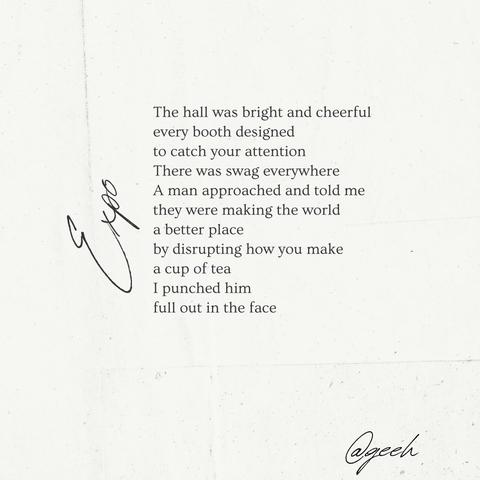 Expo
The hall was bright and cheerful
every booth designed
to catch your attention
There was swag everywhere
A man approached and told me
they were making the world
a better place
by disrupting how you make
a cup of tea
I punched him
full out in the face
@geeh